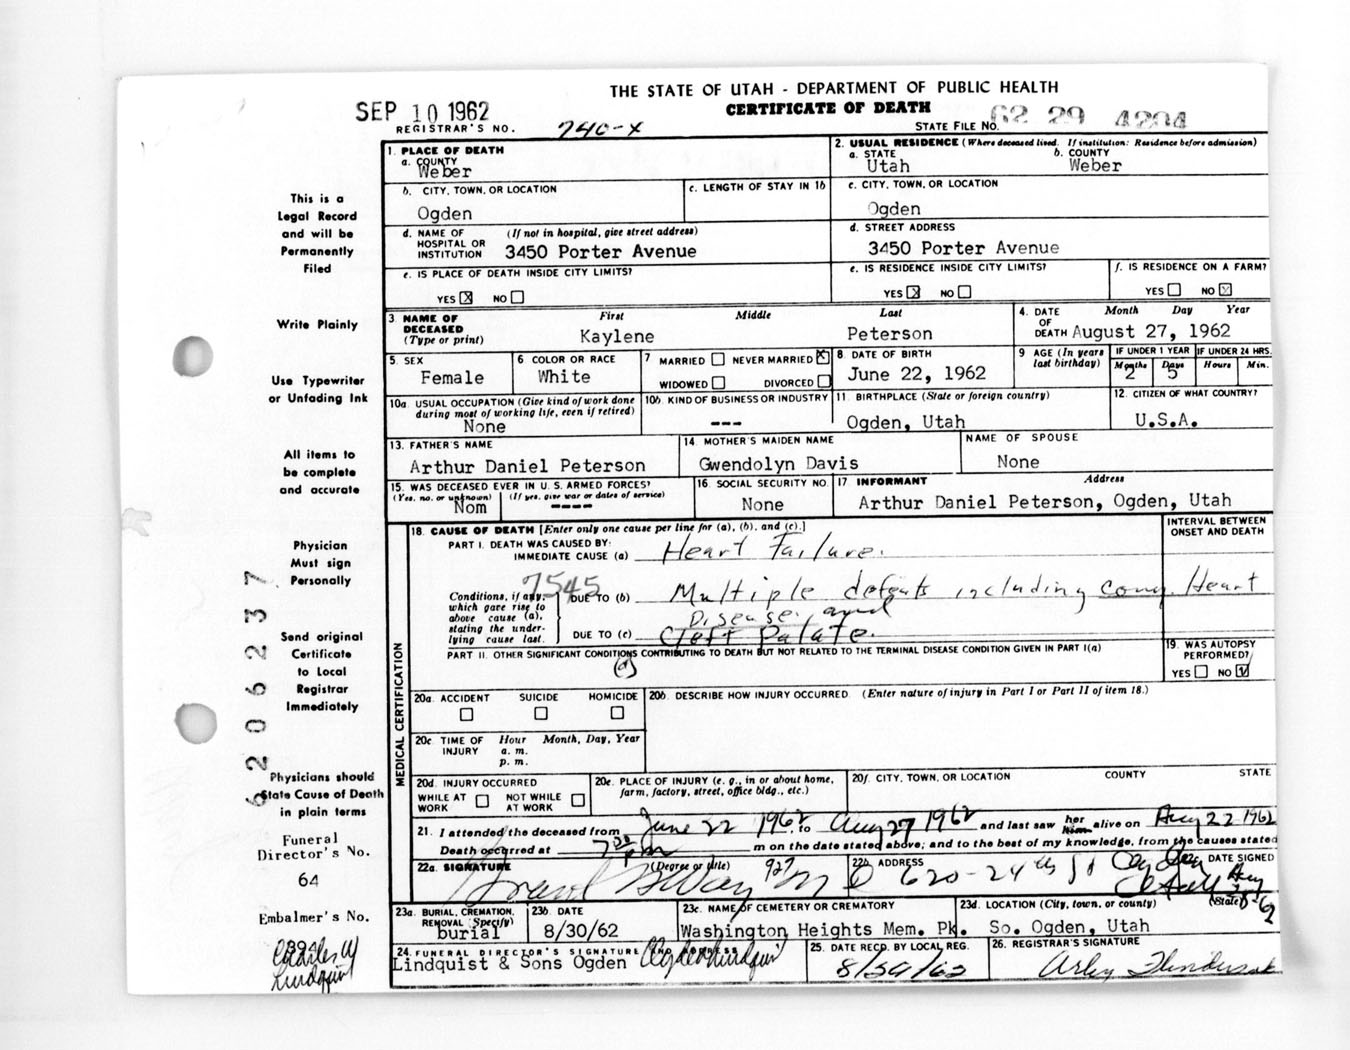 THE STATE OF UTAH - DEPARTMENT OF PUBLIC HEALTH
CERTIFICATE OF DEATH
SEP 10 1962
REGISTRAR'S NO. 740-X
STATE FILE NO. 62 29 4204
This is a
Legal Record
and will be
Permanently
Filed
Write Plainly
Use Typewriter
or Unfading Ink
All items to
be complete
and accurate
Physician
Must sign
Personally
Send original
Certificate
to Local
Registrar
Immediately
Physicians should
State Cause of Death
in plain terms
Funeral
Director's No.
64
Embalmer's No.
Charles W
Lindquist
1. PLACE OF DEATH
a. COUNTY
Weber
2. USUAL RESIDENCE (Where deceased lived. If institution: Residence before admission)
a. STATE b. COUNTY
Utah Weber
b. CITY, TOWN, OR LOCATION c. LENGTH OF STAY IN 1b
Ogden
c. CITY, TOWN, OR LOCATION
Ogden
d. NAME OF (If not in hospital, give street address)
HOSPITAL OR
INSTITUTION 3450 Porter Avenue
d. STREET ADDRESS
3450 Porter Avenue
e. IS PLACE OF DEATH INSIDE CITY LIMITS?
YES X NO
e. IS RESIDENCE INSIDE CITY LIMITS? f. IS RESIDENCE ON A FARM?
YES X NO YES NO X
3. NAME OF First Middle Last
DECEASED
(Type or print) Kaylene Peterson
4. DATE Month Day Year
OF
DEATH August 27, 1962
5. SEX 6. COLOR OR RACE
Female White
7. MARRIED NEVER MARRIED X
WIDOWED DIVORCED
8. DATE OF BIRTH
June 22, 1962
9. AGE (In years last birthday) IF UNDER 1 YEAR IF UNDER 24 HRS.
Months Days Hours Min.
2 5
10a. USUAL OCCUPATION (Give kind of work done
during most of working life, even if retired)
None
10b. KIND OF BUSINESS OR INDUSTRY
---
11. BIRTHPLACE (State or foreign country)
Ogden, Utah
12. CITIZEN OF WHAT COUNTRY?
U.S.A.
13. FATHER'S NAME
Arthur Daniel Peterson
14. MOTHER'S MAIDEN NAME
Gwendolyn Davis
NAME OF SPOUSE
None
15. WAS DECEASED EVER IN U. S. ARMED FORCES?
(Yes, no, or unknown) (If yes, give war or dates of service)
Nom ----
16. SOCIAL SECURITY NO.
None
17. INFORMANT Address
Arthur Daniel Peterson, Ogden, Utah
MEDICAL CERTIFICATION
18. CAUSE OF DEATH [Enter only one cause per line for (a), (b), and (c).]
INTERVAL BETWEEN
ONSET AND DEATH
PART I. DEATH WAS CAUSED BY:
IMMEDIATE CAUSE (a) Heart Failure.
7545
Conditions, if any,
which gave rise to
above cause (a),
stating the under-
lying cause last.
DUE TO (b) Multiple defects including cong Heart
Disease, and
DUE TO (c) Cleft Palate.
PART II. OTHER SIGNIFICANT CONDITIONS CONTRIBUTING TO DEATH BUT NOT RELATED TO THE TERMINAL DISEASE CONDITION GIVEN IN PART I(a)
(d)
19. WAS AUTOPSY
PERFORMED?
YES NO V
20a. ACCIDENT SUICIDE HOMICIDE
20b. DESCRIBE HOW INJURY OCCURRED. (Enter nature of injury in Part I or Part II of item 18.)
20c. TIME OF Hour Month, Day, Year
INJURY a. m.
p. m.
20d. INJURY OCCURRED
WHILE AT WORK NOT WHILE AT WORK
20e. PLACE OF INJURY (e. g., in or about home,
farm, factory, street, office bldg., etc.)
20f. CITY, TOWN, OR LOCATION COUNTY STATE
21. I attended the deceased from June 22 1962, to Aug 27 1962 and last saw her him alive on Aug 22 1962
Death occurred at 7 30 pm m on the date stated above; and to the best of my knowledge, from the causes stated
22a. SIGNATURE (Degree or title) 927 M D
22b. ADDRESS 620-24th St Ogden Utah
22c. DATE SIGNED
Aug
23a. BURIAL, CREMATION,
REMOVAL (Specify)
burial
23b. DATE
8/30/62
23c. NAME OF CEMETERY OR CREMATORY
Washington Heights Mem. Pk.
23d. LOCATION (City, town, or county) (State)
So. Ogden, Utah
24. FUNERAL DIRECTOR'S SIGNATURE AND ADDRESS
Lindquist & Sons Ogden
25. DATE RECD. BY LOCAL REG.
8/30/62
26. REGISTRAR'S SIGNATURE